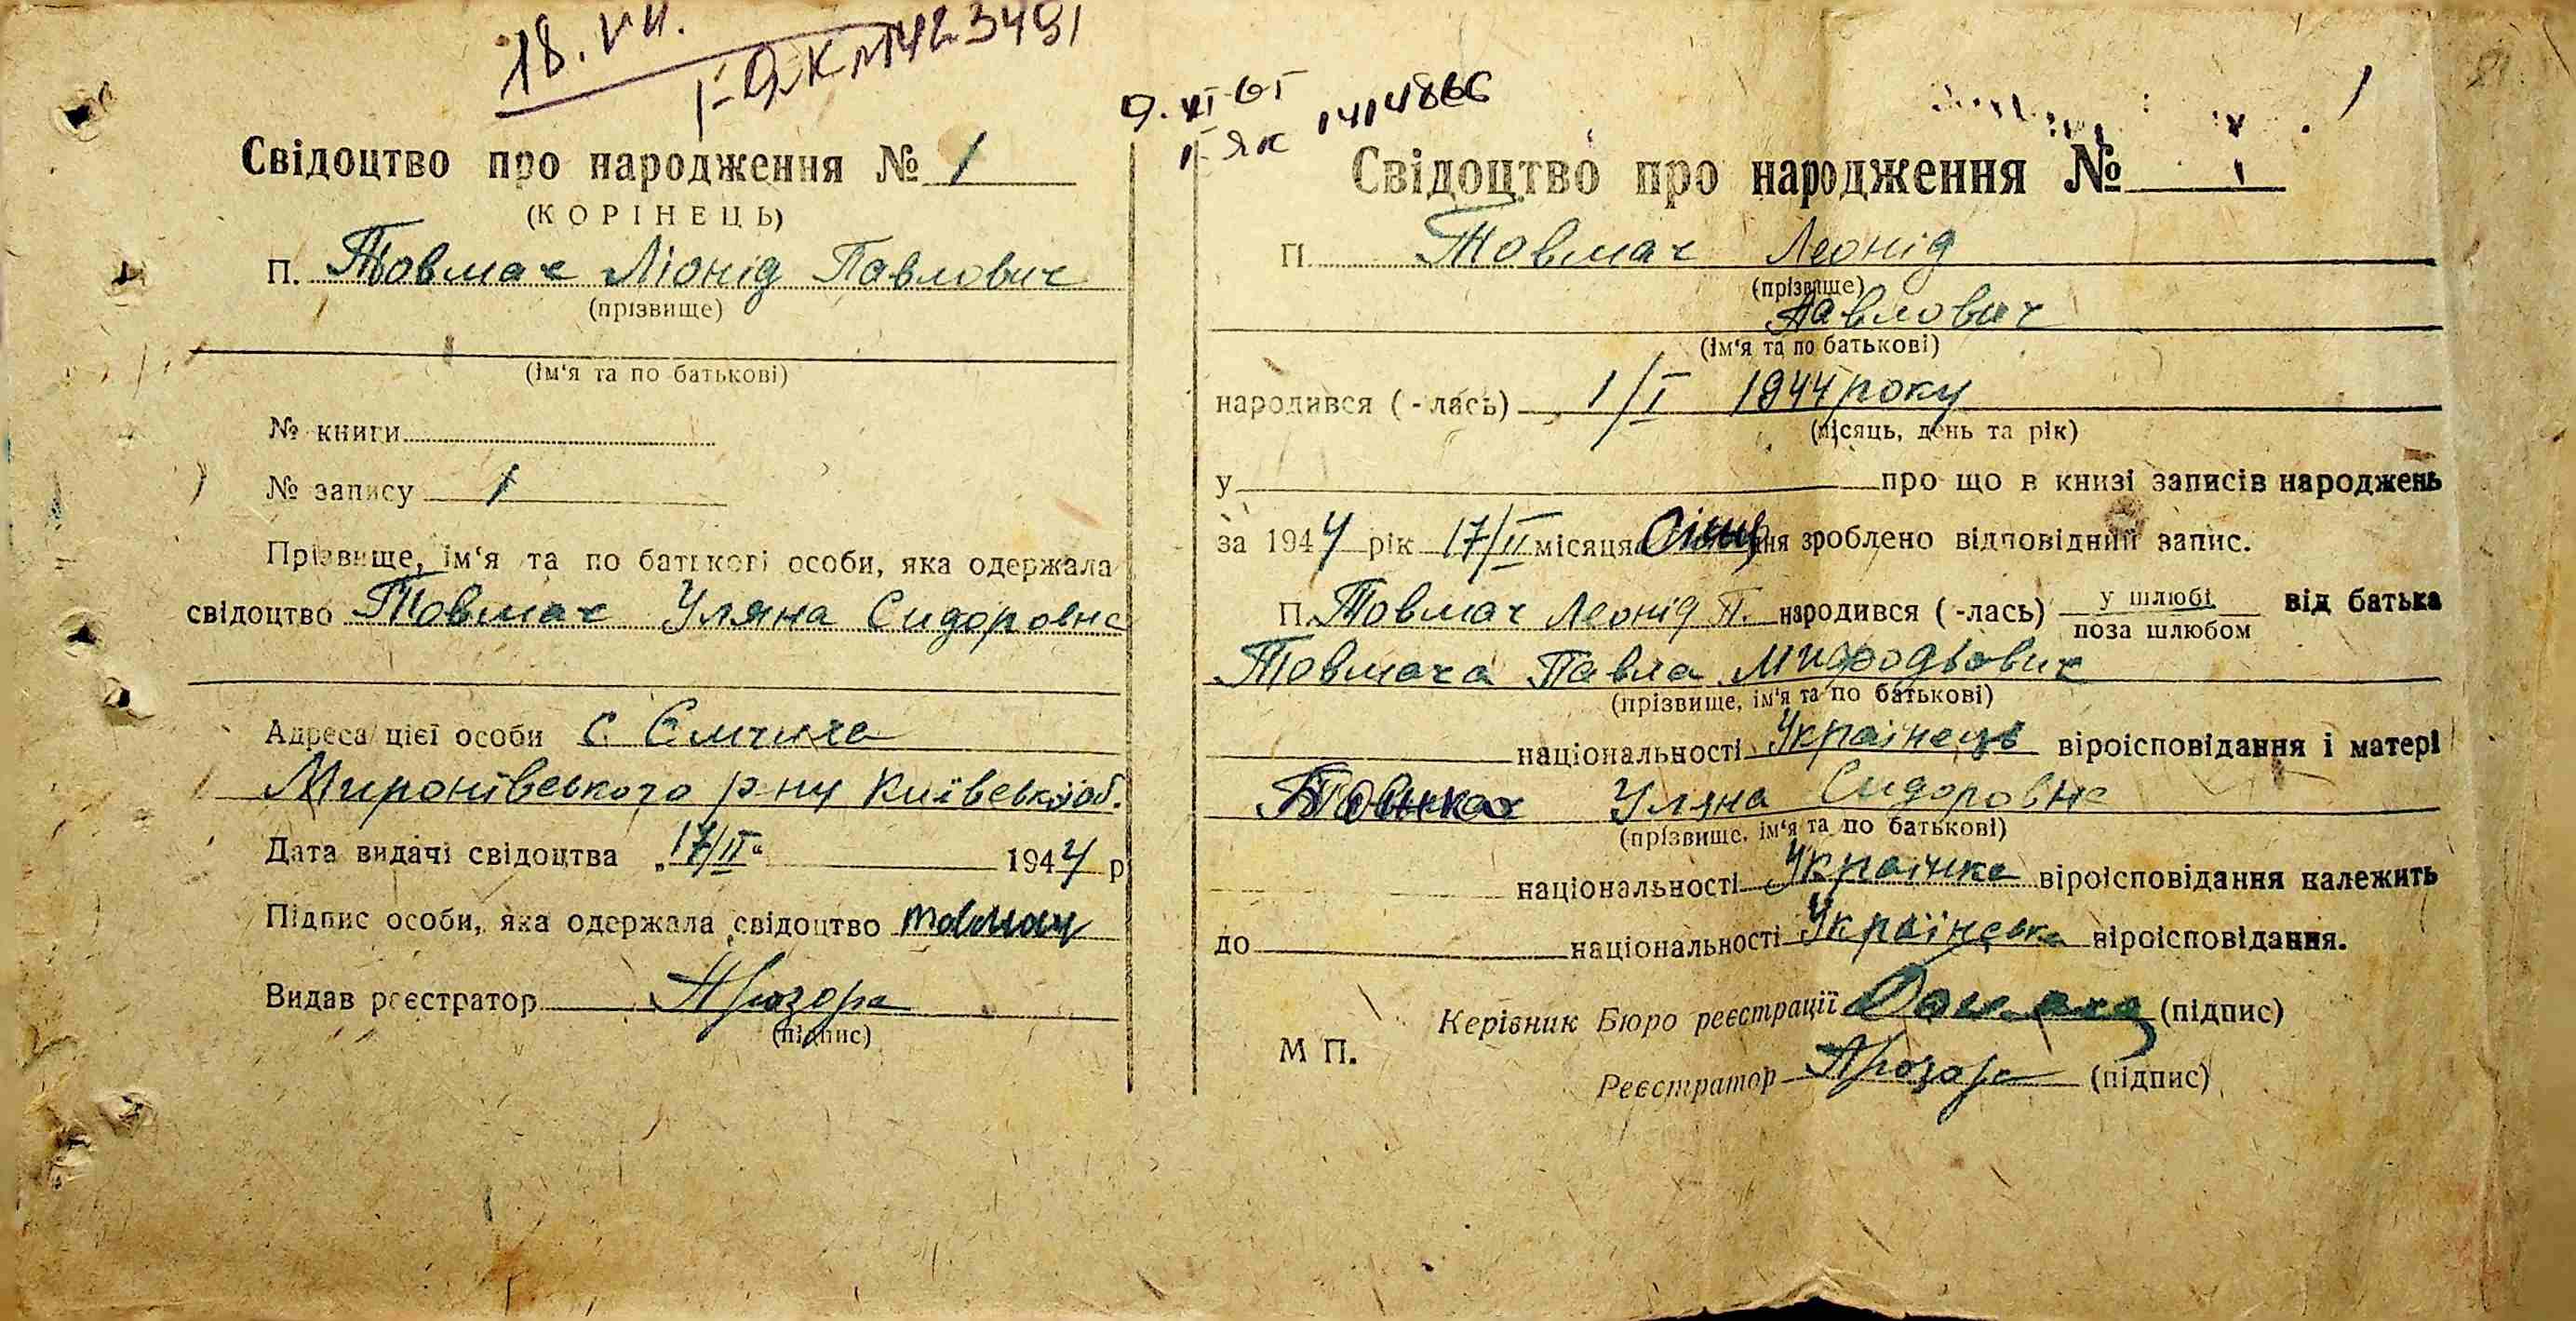 18.VII.
I-ЯК №423491
9.XI-61
II-ЯК 1414866
Свідоцтво про народження № 1
(КОРІНЕЦЬ)
П. Товмач Ліонід Павлович
(прізвище)
(ім'я та по батькові)
№ книги
№ запису 1
Прізвище, ім'я та по батькові особи, яка одержала
свідоцтво Товмач Уляна Сидоровна
Адреса цієї особи с. Ємчиха
Миронівського р-ну Київської об.
Дата видачі свідоцтва „17/II“ 1944 р
Підпис особи, яка одержала свідоцтво товмач
Видав реєстратор
(підпис)
Свідоцтво про народження № 1
П. Товмач Леонід
(прізвище)
Павлович
(ім'я та по батькові)
народився (-лась) 1/I 1944 року
(місяць, день та рік)
у про що в книзі записів народжень
за 1944 рік 17/II місяця дня зроблено відповідний запис.
П. Товмач Леонід П. народився (-лась) у шлюбі від батька
поза шлюбом
Товмача Павла Мифодьович
(прізвище, ім'я та по батькові)
національності Українець віроісповідання і матері
Товмач Уляна Сидоровна
(прізвище, ім'я та по батькові)
національності Українка віроісповідання належить
до національності Українська віроісповідання.
Керівник Бюро реєстрації (підпис)
М П.
Реєстратор (підпис)